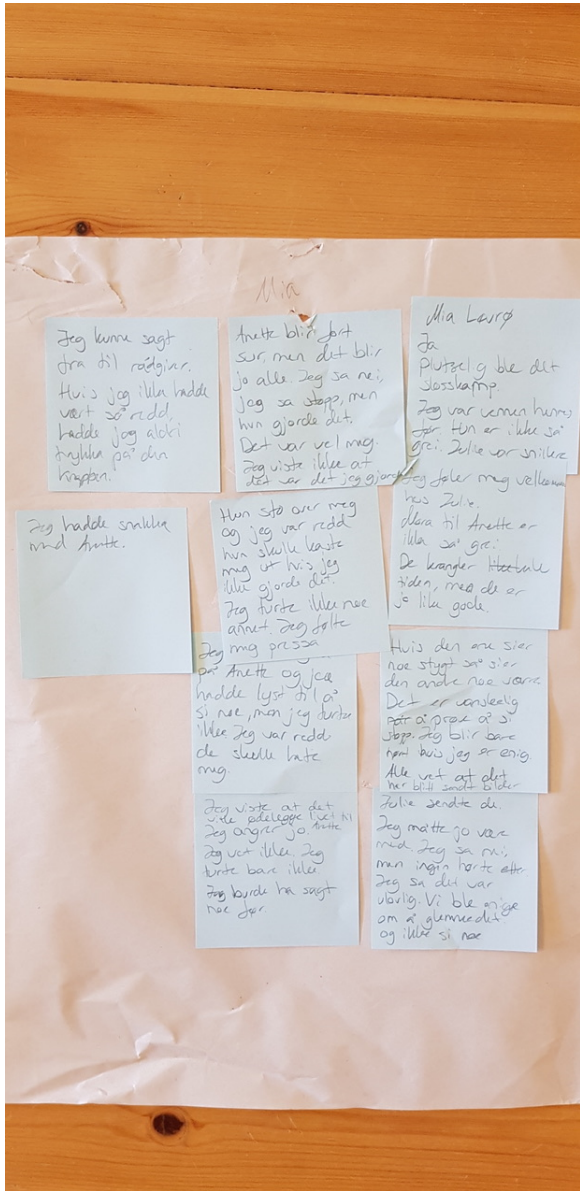 Mia
Jeg kunne sagt
fra til rådgiver.
Hvis jeg ikke hadde
vært så redd,
hadde jeg aldri
trykka på den
knappen.
Anette blir fort
sur, men det blir
jo alle. Jeg sa nei,
jeg sa stopp, men
hun gjorde det.
Det var vel meg.
Jeg viste ikke at
det var det jeg gjorde
Mia Laurø
Ja
Plutselig ble det
slosskamp.
Jeg var vennen hennes
før. Hun er ikke så
grei. Julie var snillere
Jeg hadde snakka
med Anette.
Hun sto over meg
og jeg var redd
hun skulle kaste
meg ut hvis jeg
ikke gjorde det.
Jeg turte ikke noe
annet. Jeg følte
meg pressa
Jeg føler meg velkommen
hos Julie.
Mora til Anette er
ikke så grei
De krangler hele
tiden, men de er
jo like gode.
Jeg
på Anette og jeg
hadde lyst til å
si noe, men jeg turte
ikke. Jeg var redd
de skulle hate
meg.
Hvis den ene sier
noe stygt så sier
den andre noe værre
Det er vanskelig
å prøve å si
stopp. Jeg blir bare
hørt hvis jeg er enig
Alle vet at det
har blitt sendt bilder
Jeg viste at det
ville ødelegge livet til
Jeg angrer jo. Anette
Jeg vet ikke. Jeg
turte bare ikke
Jeg burde ha sagt
noe før.
Julie sendte de.
Jeg måtte jo være
med. Jeg sa nei,
men ingen hørte etter
Jeg sa det var
ulovlig. Vi ble enige
om å glemme det
og ikke si noe